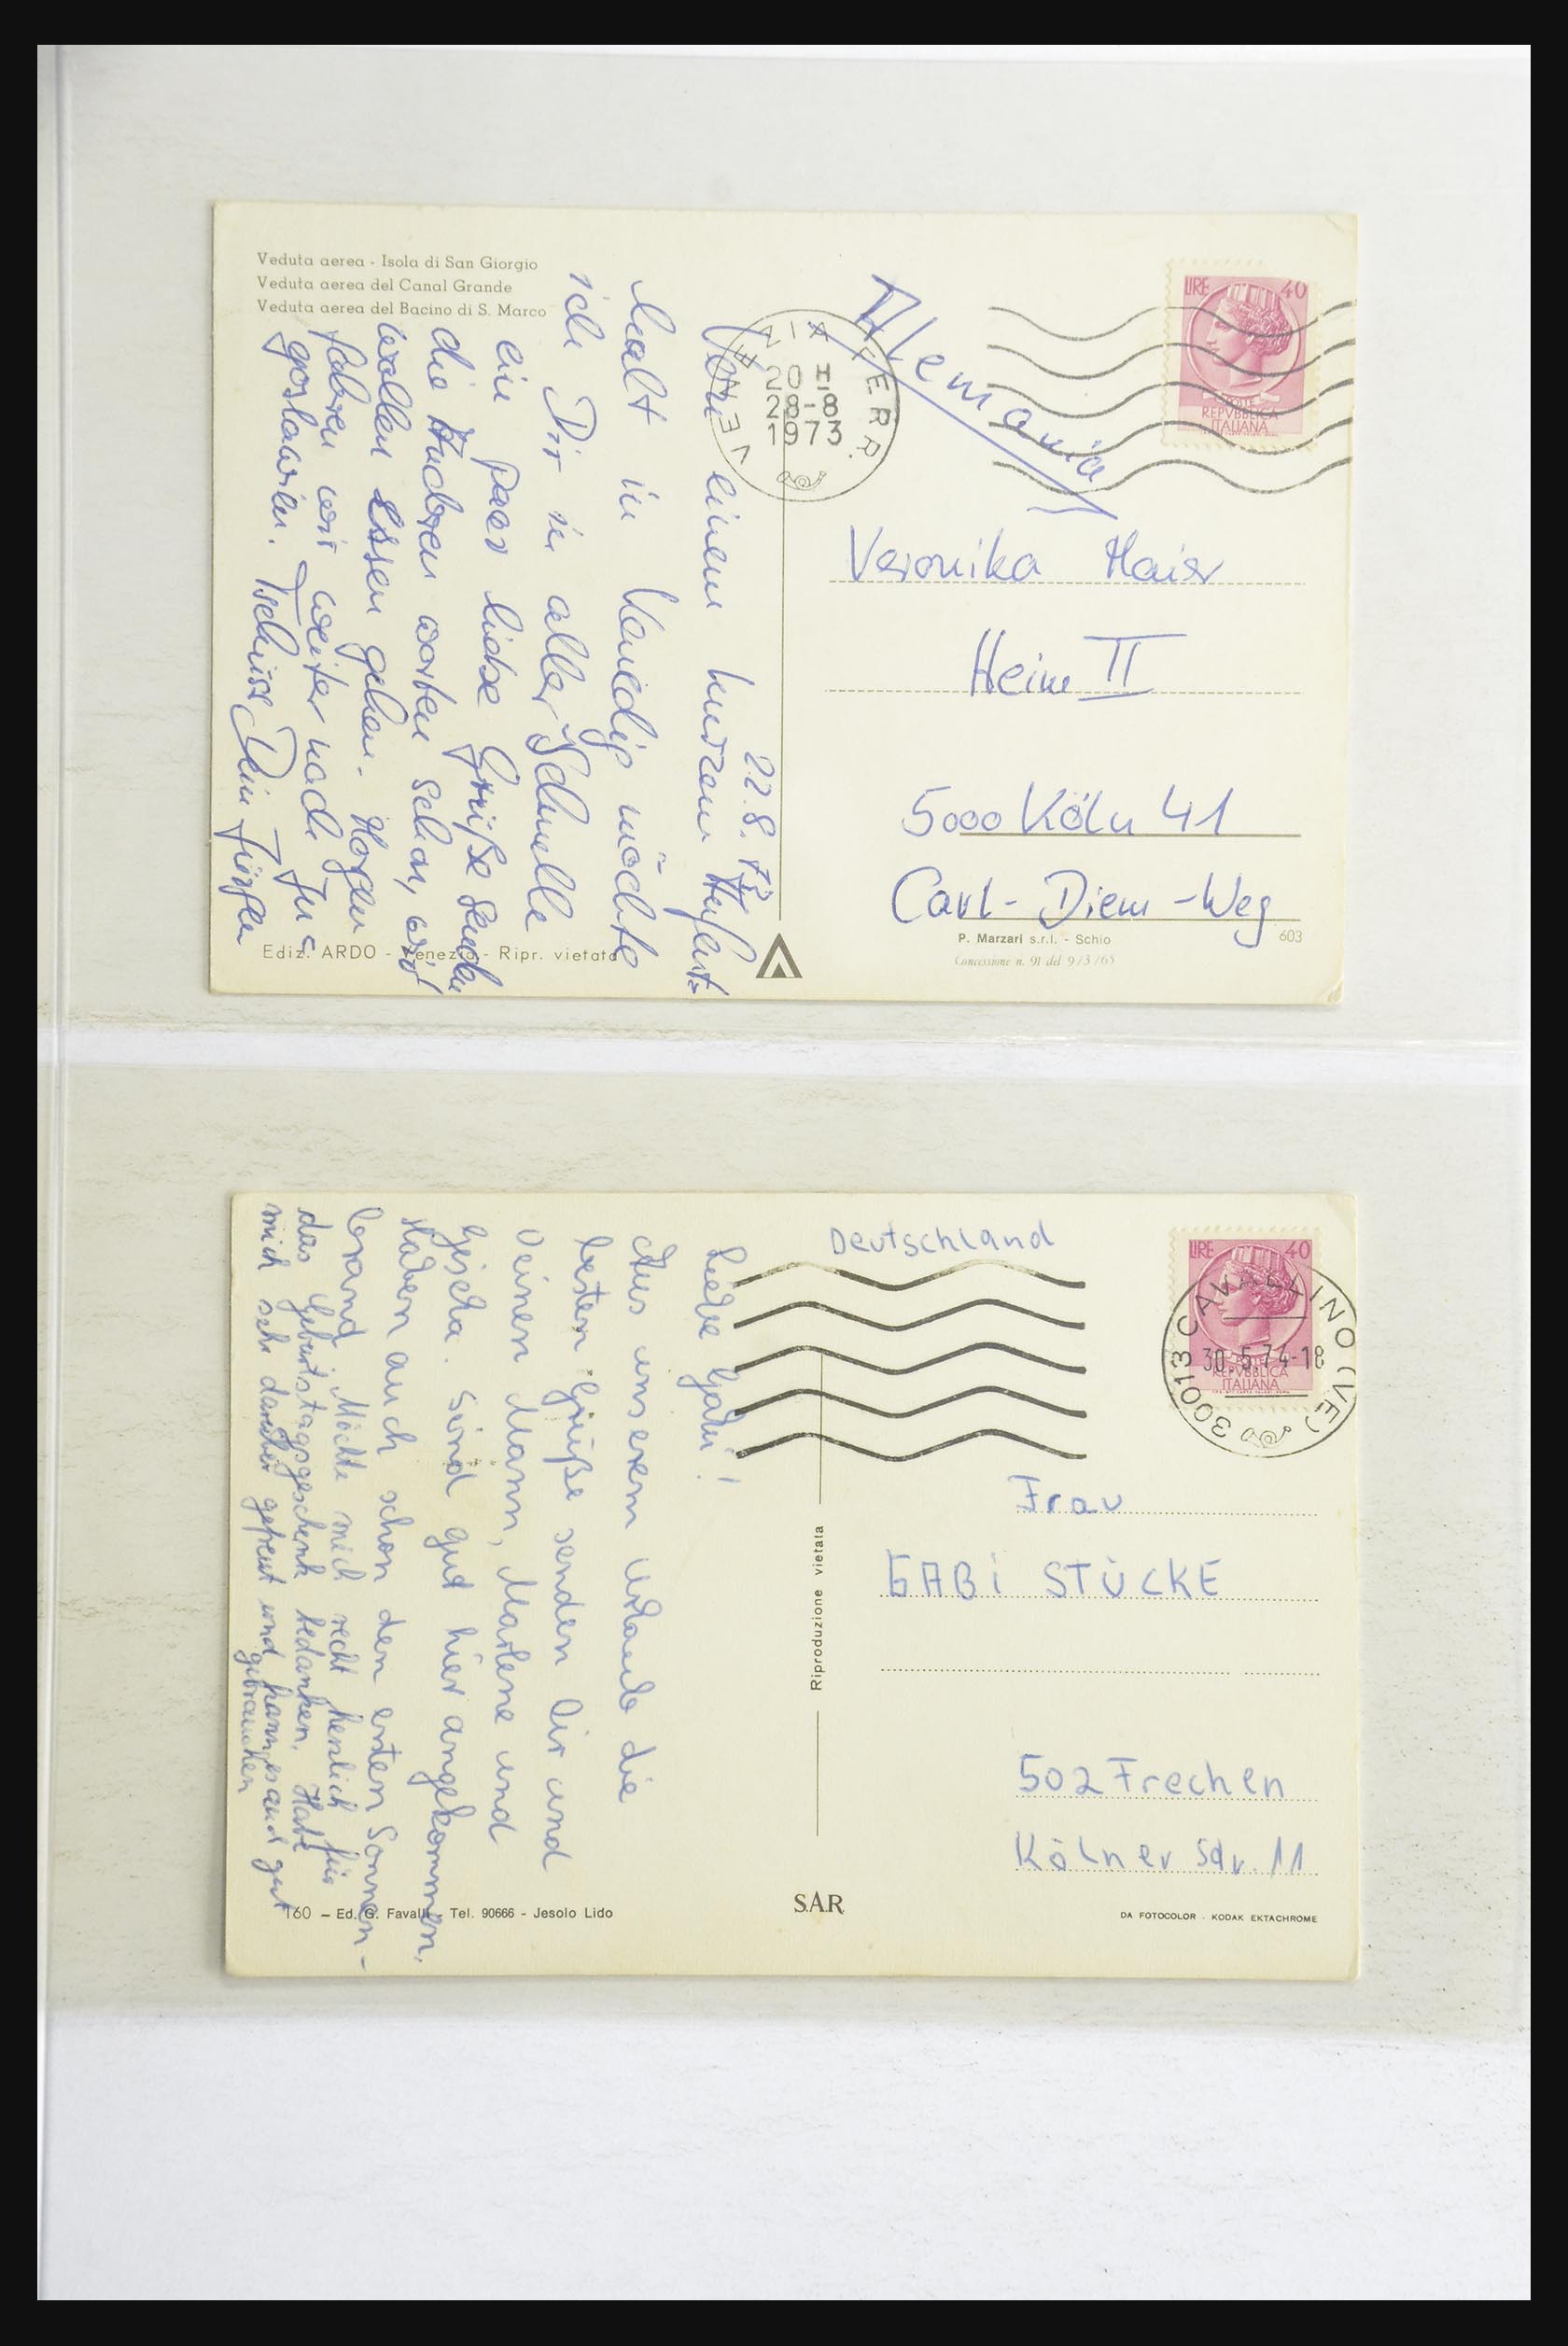 Veduta aerea - Isola di San Giorgio
Veduta aerea del Canal Grande
Veduta aerea del Bacino di S. Marco
22.8.73
Von einem kurzen Aufent=
halt in Venedig möchte
ich Dir in aller Schnelle
ein paar liebe Grüße senden
die anderen warten schon, wir
wollen Essen gehen. Morgen
fahren wir weiter nach Ju=
goslawien. Tschüss Dein Jürgen
Ediz. ARDO - Venezia - Ripr. vietata
VENEZIA FERR.
20 H
28-8
1973
Alemania
LIRE 40
POSTE
REPVBBLICA
ITALIANA
Veronika Maier
Heim II
5000 Köln 41
Carl-Diem-Weg
P. Marzari s.r.l. - Schio
603
Concessione n. 91 del 9/3/65
Liebe Gabi!
Aus unserem Urlaub die
besten Grüße senden Dir und
Deinen Mann, Marlene und
Gisela. Sind gut hier angekommen,
Haben auch schon den ersten Sonnen-
brand. Möchte mich recht herzlich für
das Geburtstagsgeschenk bedanken. Habe
mich sehr darüber gefreut und kann es auch gut
gebrauchen
160 - Ed. G. Favalli - Tel. 90666 - Jesolo Lido
Riproduzione vietata
S.A.R
Deutschland
LIRE 40
REPVBBLICA
ITALIANA
30013 CAVALLINO (VE)
30.5.74-18
Frau
GABI STÜCKE
502 Frechen
Kölner Str. 11
DA FOTOCOLOR - KODAK EKTACHROME